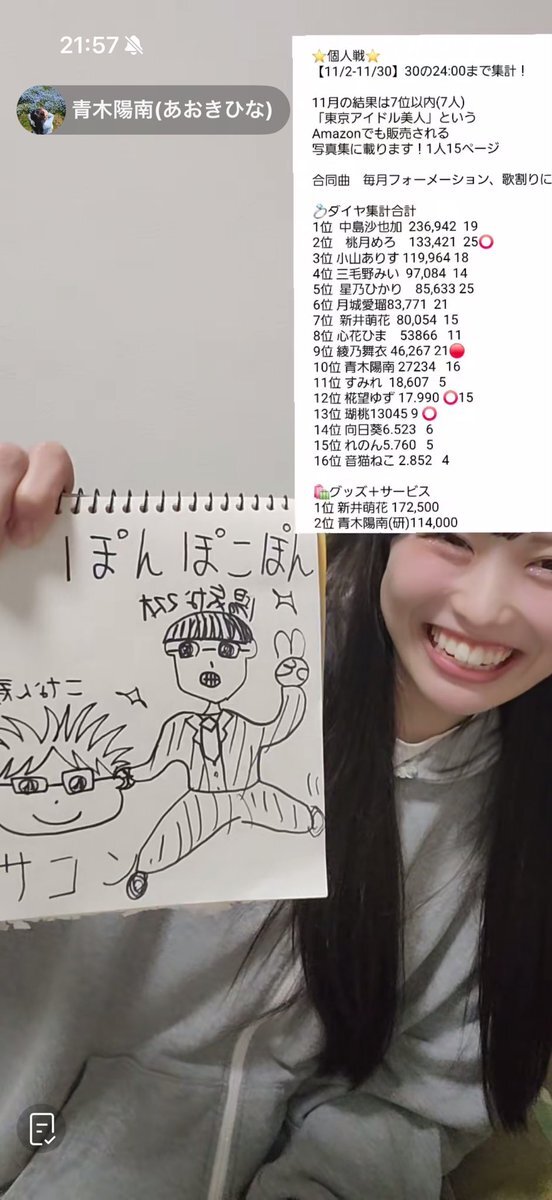 21:57
青木陽南(あおきひな)
⭐個人戦⭐
【11/2-11/30】30の24:00まで集計！
11月の結果は7位以内(7人)
「東京アイドル美人」という
Amazonでも販売される
写真集に載ります！1人15ページ
合同曲　毎月フォーメーション、歌割りに
💍ダイヤ集計合計
1位 中島沙也加 236,942 19
2位　桃月めろ　133,421 25⭕
3位 小山ありす 119,964 18
4位 三毛野みい 97,084 14
5位 星乃ひかり　85,633 25
6位 月城愛瑠83,771 21
7位 新井萌花 80,054 15
8位 心花ひま　53866 11
9位 綾乃舞衣 46,267 21🔴
10位 青木陽南 27234　16
11位 すみれ 18,607　5
12位 椛望ゆず 17.990 ⭕15
13位 瑚桃13045 9 ⭕
14位 向日葵6.523　6
15位 れのん5.760　5
16位 音猫ねこ 2.852　4
🛍️グッズ＋サービス
1位 新井萌花 172,500
2位 青木陽南(研)114,000
ぽんぽこぽん
サコン